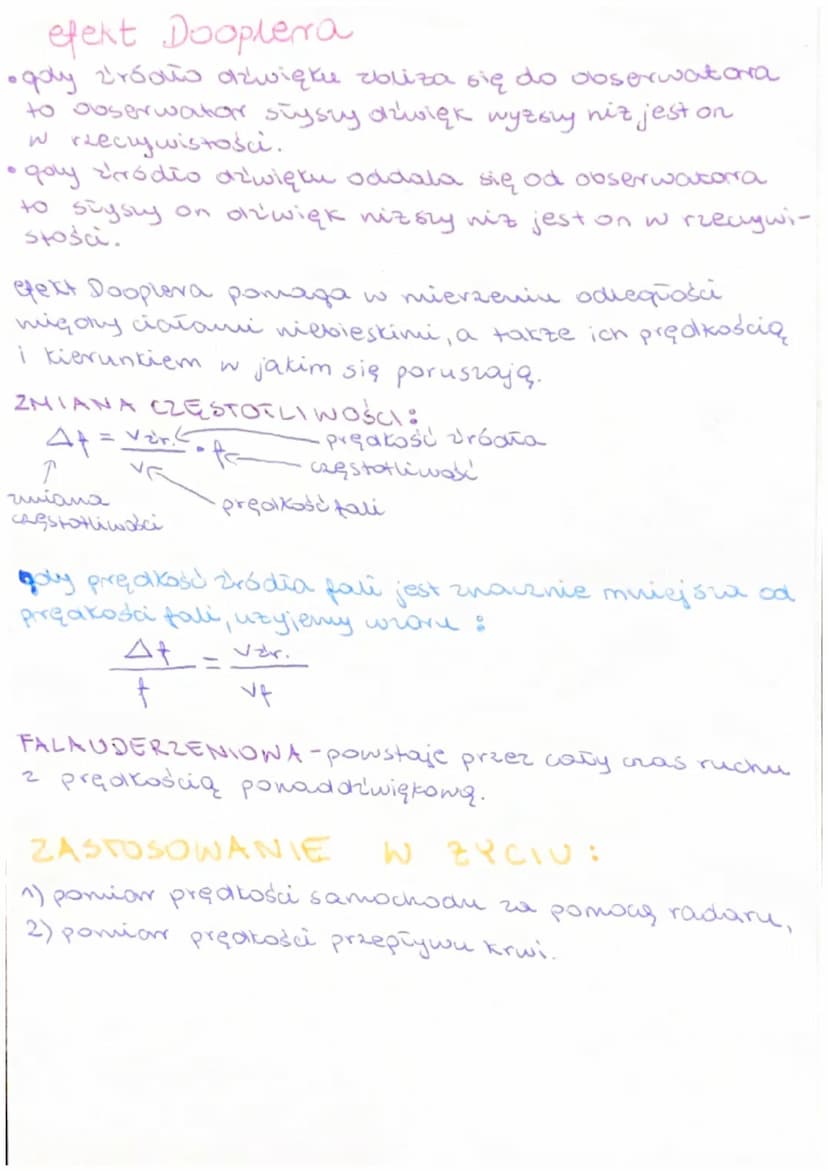 efekt Dooplera
• gdy źródło dźwięku zbliża się do obserwatora
to obserwator słyszy dźwięk wyższy niż jest on
w rzeczywistości.
• gdy źródło dźwięku oddala się od obserwatora
to słyszy on dźwięk niższy niż jest on w rzeczywi-
stości.
efekt Dooplera pomaga w mierzeniu odległości
między ciałami niebieskimi, a także ich prędkością
i kierunkiem w jakim się poruszają.
ZMIANA CZĘSTOTLIWOŚCI:
Δf = vźr. / vf · f
prędkość źródła
częstotliwość
prędkość fali
zmiana
częstotliwości
gdy prędkość źródła fali jest znacznie mniejsza od
prędkości fali, użyjemy wzoru:
Δf / f = vźr. / vf
FALA UDERZENIOWA - powstaje przez cały czas ruchu
z prędkością ponaddźwiękową.
ZASTOSOWANIE W ŻYCIU:
1) pomiar prędkości samochodu za pomocą radaru,
2) pomiar prędkości przepływu krwi.